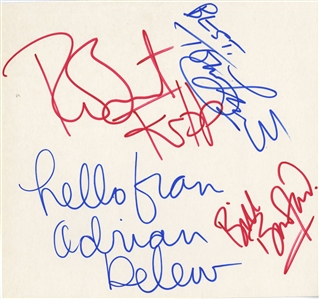 Robert
Fripp
hello fran
adrian
Belew
Bill
Bruford.